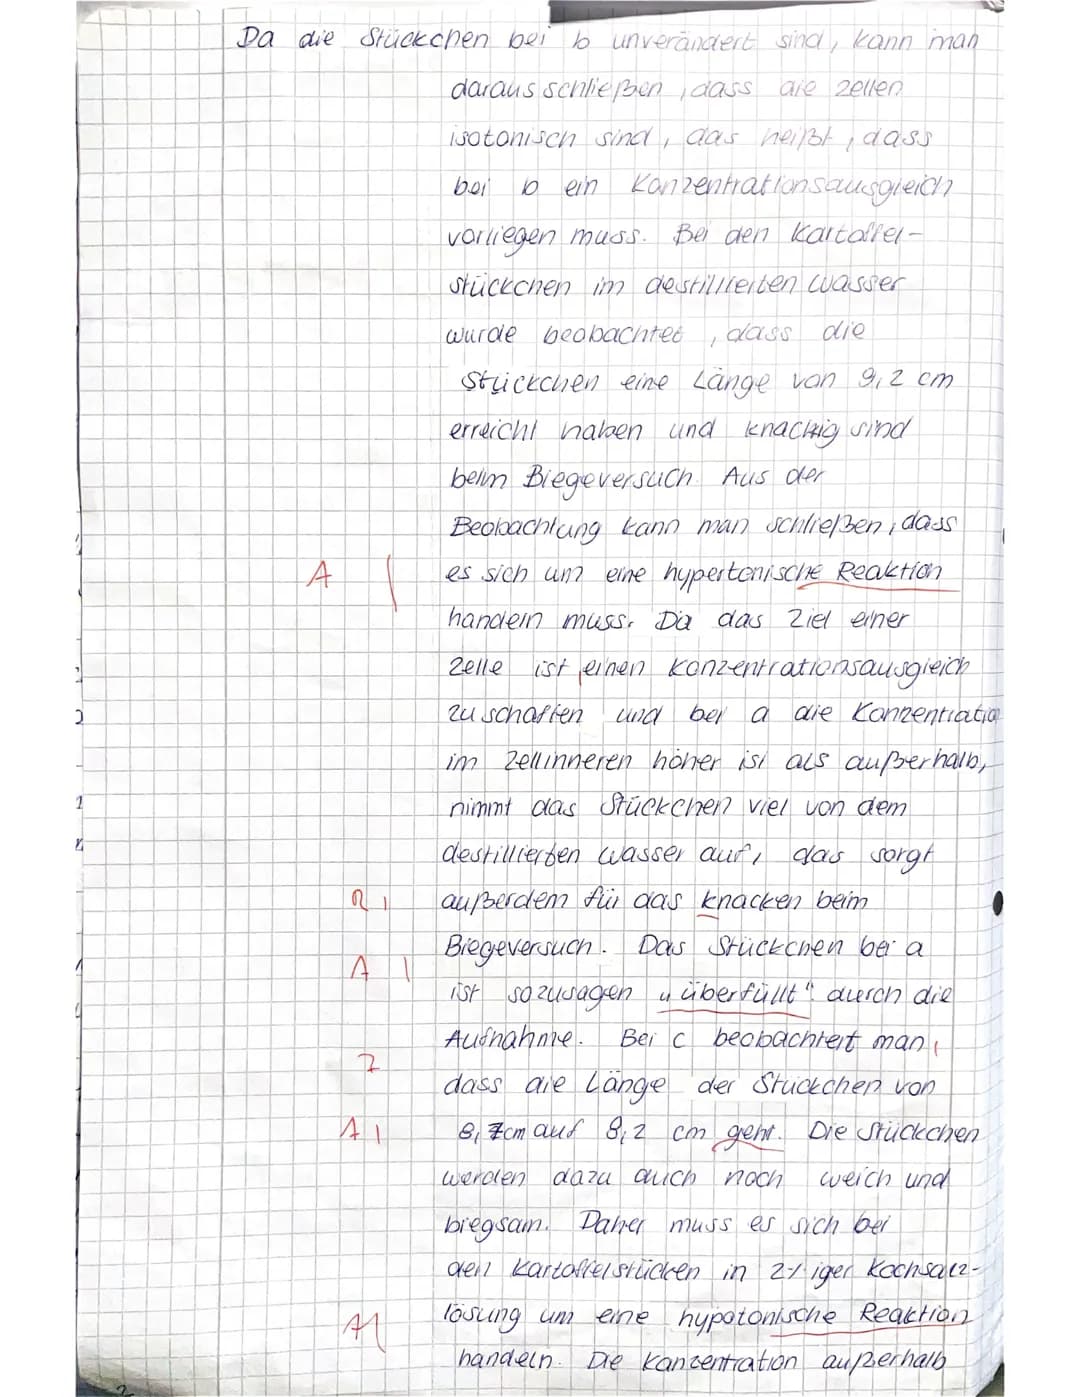 Da die Stückchen bei b unverändert sind, kann man
daraus schließen, dass die Zellen
isotonisch sind, das heißt, dass
bei b ein Konzentrationsausgleich
vorliegen muss. Bei den Kartoffel-
stückchen im destillierten Wasser
wurde beobachtet, dass die
Stückchen eine Länge von 9,2 cm
erreicht haben und knackig sind
beim Biegeversuch. Aus der
Beobachtung kann man schließen, dass
A | es sich um eine hypertonische Reaktion
handeln muss. Da das Ziel einer
Zelle ist einen Konzentrationsausgleich
zu schaffen und bei a die Konzentratio
im Zellinneren höher ist als außerhalb,
nimmt das Stückchen viel von dem
destillierten Wasser auf, das sorgt
R | außerdem für das knacken beim
Biegeversuch. Das Stückchen bei a
A | ist sozusagen „überfüllt" durch die
Aufnahme. Bei c beobachtet man,
Z dass die Länge der Stückchen von
A | 8,7cm auf 8,2 cm geht. Die Stückchen
werden dazu auch noch weich und
biegsam. Daher muss es sich bei
den Kartoffelstücken in 2% iger Kochsalz-
A | lösung um eine hypotonische Reaktion
handeln. Die Konzentration außerhalb